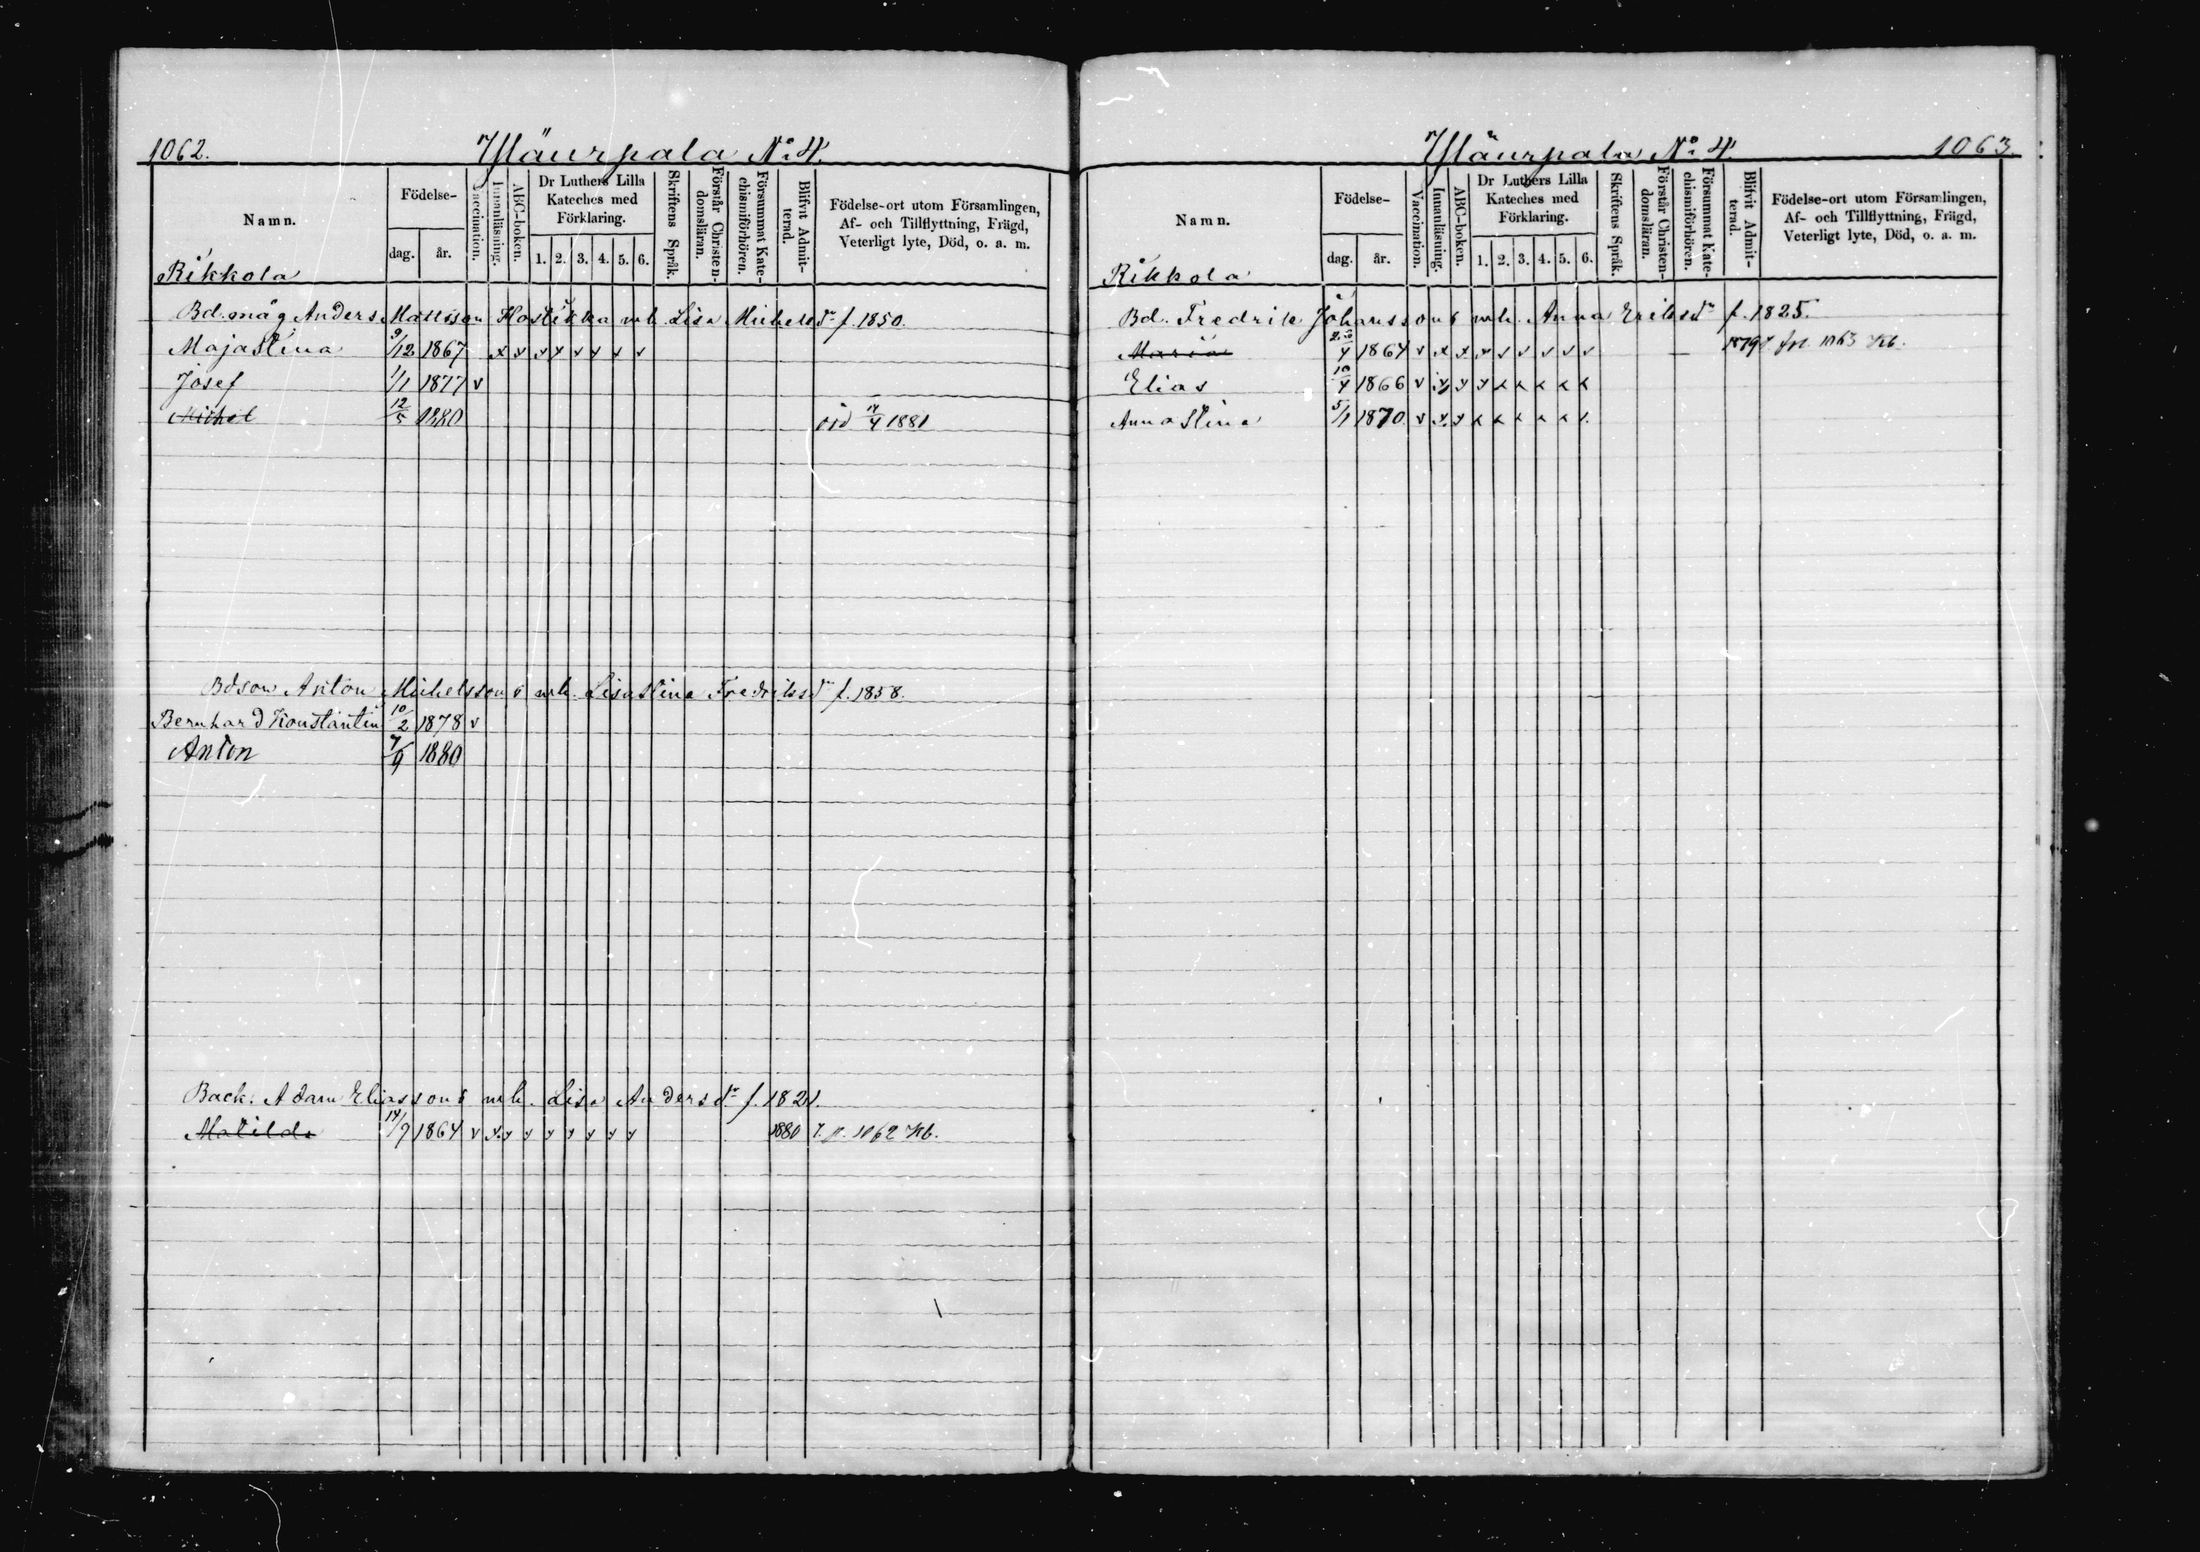 1062.
Yläurpala No 4.
Namn.
Födelse-
dag.
år.
Vaccination.
Innanläsning.
ABC-boken.
Dr Luthers Lilla
Kateches med
Förklaring.
1. 2. 3. 4. 5. 6.
Skriftens Språk.
Förstår Christen-
domsläran.
Försummat Kate-
chismiförhören.
Blifvit Admit-
terad.
Födelse-ort utom Församlingen,
Af- och Tillflyttning, Frägd,
Veterligt lyte, Död, o. a. m.
Rikkola
Bd. måg Anders Mattsson Hostikka mh Lisa Michelsdr f. 1850.
Majastina 9/12 1867 x v v v v v v v
Josef 1/1 1877 v
Michel 12/5 1880 död 14/4 1881
Bdson Anton Michelssons mh. Lisastina Fredriksdr f. 1858.
Bernhard Konstantin 10/2 1878 v
Anton 7/9 1880
Back. Adam Eliassons mh. Lisa Andersdr f. 1821.
Matilda 14/7 1864 v x v v v v v v v 1880 T. p. 1062 Kb.
Yläurpala No 4.
1063.
Namn.
Födelse-
dag.
år.
Vaccination.
Innanläsning.
ABC-boken.
Dr Luthers Lilla
Kateches med
Förklaring.
1. 2. 3. 4. 5. 6.
Skriftens Språk.
Förstår Christen-
domsläran.
Försummat Kate-
chismiförhören.
Blifvit Admit-
terad.
Födelse-ort utom Församlingen,
Af- och Tillflyttning, Frägd,
Veterligt lyte, Död, o. a. m.
Rikkola
Bd. Fredrik Johanssons mh. Anna Eriksdr f. 1825.
Maria 1864 v x x v v v v v v 1879 1063 Kb.
Elias 10/4 1866 v v v v x x x x x
Annastina 5/1 1870. v v v x x x x x x